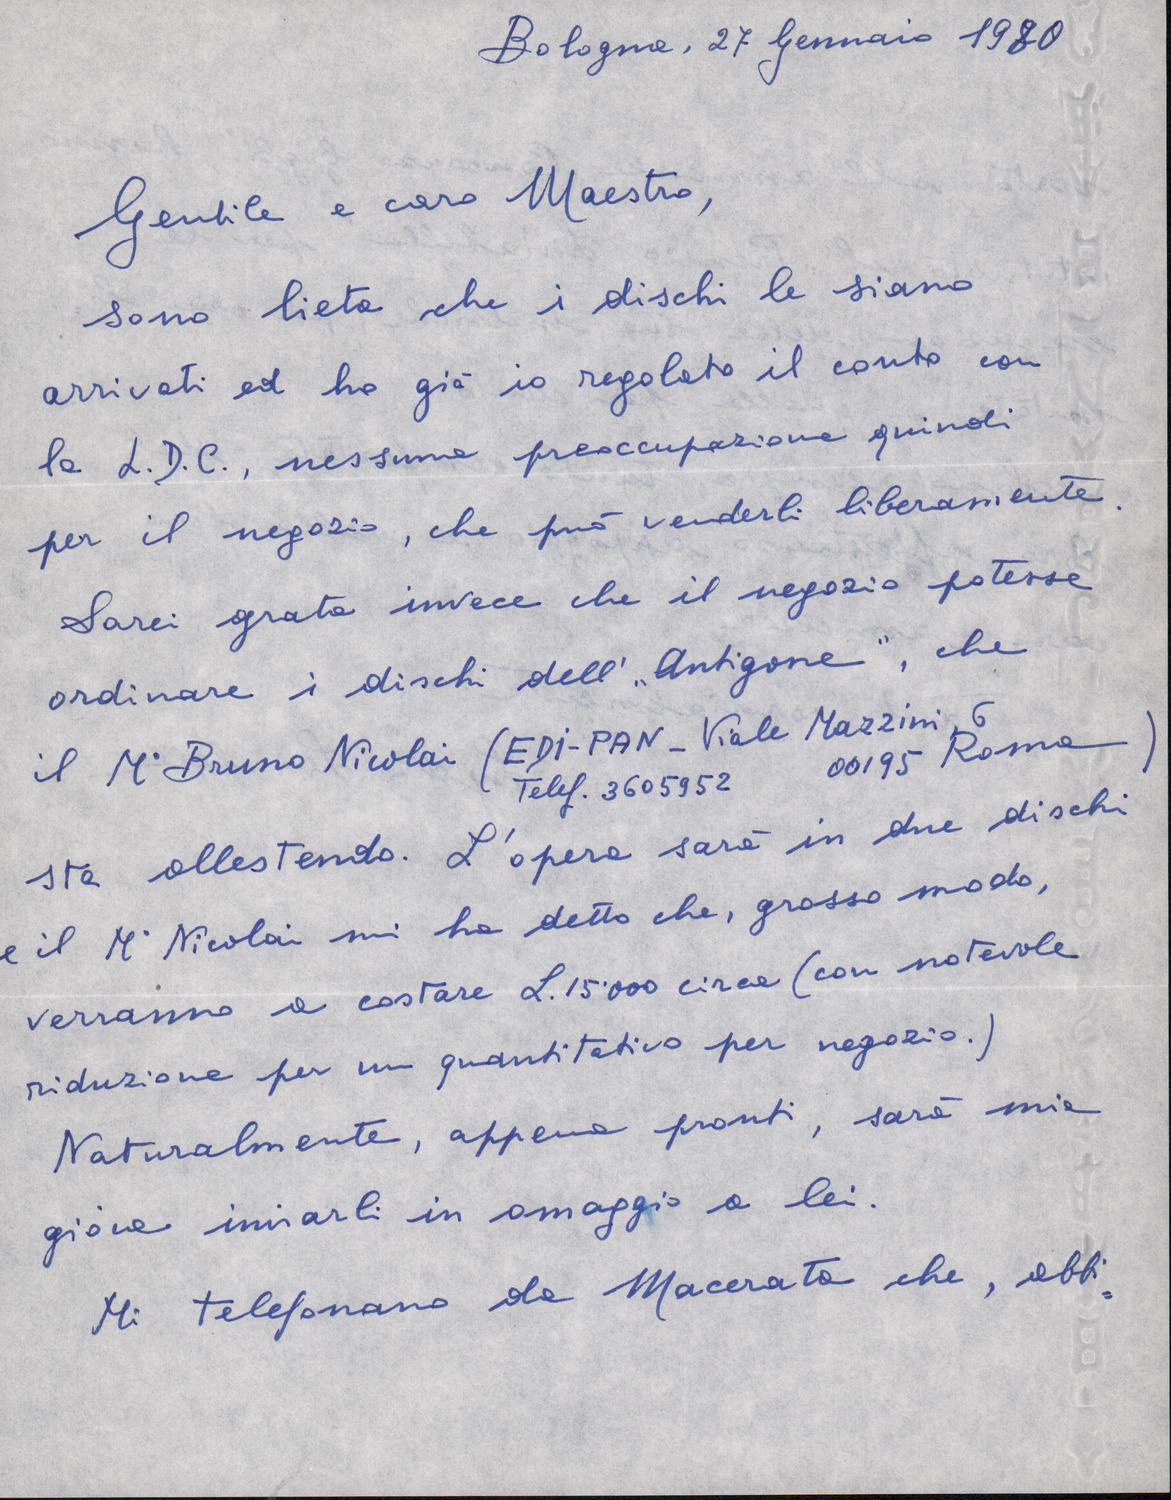 Bologna, 27 Gennaio 1980
Gentile e caro Maestro,
sono lieta che i dischi le siano
arrivati ed ho già io regolato il conto con
la L.D.C., nessuna preoccupazione quindi
per il negozio, che può venderli liberamente.
Sarei grata invece che il negozio potesse
ordinare i dischi dell' „Antigone", che
il M° Bruno Nicolai (EDI-PAN - Viale Mazzini, 6
Telef. 3605952 00195 Roma)
sta allestendo. L'opera sarà in due dischi
e il M° Nicolai mi ha detto che, grosso modo,
verranno a costare L.15'000 circa (con notevole
riduzione per un quantitativo per negozio.)
Naturalmente, appena pronti, sarà mia
gioia inviarli in omaggio a lei.
Mi telefonano da Macerata che, abbi=